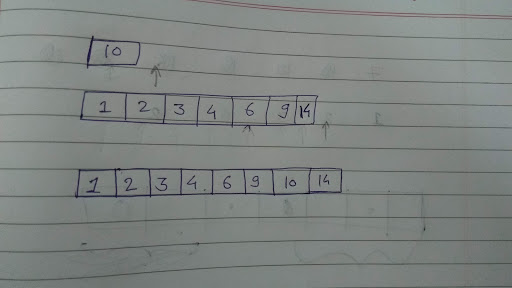 10
1 2 3 4 6 9 14
1 2 3 4 6 9 10 14